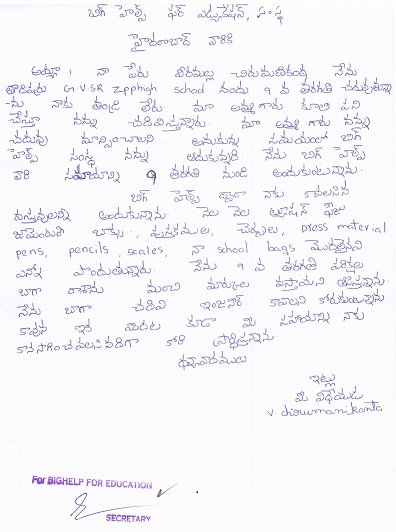 బిగ్ హెల్ప్ ఫర్ ఎడ్యుకేషన్, సంస్థ
హైదరాబాద్ వారికి
అయ్యా! నా పేరు చిరుమణికంఠ నేను
G.V.SR Zpphigh school నందు 9 వ తరగతి చదువుతున్నా
-ను నాకు తండ్రి లేరు మా అమ్మ గారు కూలి పని
చేస్తూ నన్ను చదివిస్తున్నారు. మా అమ్మ గారు నన్ను
చదువు మాన్పించాలని అనుకున్న సమయంలో బిగ్
హెల్ప్ సంస్థ నన్ను ఆదుకున్నది. నేను బిగ్ హెల్ప్
వారి సహాయాన్ని 9 తరగతి నుండి అందుకుంటున్నాను.
బిగ్ హెల్ప్ ద్వారా నాకు కావలసిన
వస్తువులన్ని అందుకున్నాను. నెల నెల ట్యూషన్ ఫీజు
జామెంటరి బాక్సు, పుస్తకములు, చెప్పులు, press material
pens, pencils, scales, నా school bags మొదలైనవి
ఎన్నో పొందుతున్నాను. నేను 9 వ తరగతి పరీక్షలు
బాగా రాశాను మంచి మార్కులు వస్తాయని ఆశిస్తున్నాను.
నేను బాగా చదివి ఇంజనీర్ కావాలని కోరుకుంటున్నాను
కావున ఇక మీదట కూడా మీ సహాయాన్ని నాకు
కొనసాగించవలసినదిగా కోరి ప్రార్థిస్తున్నాను.
ధన్యవాదములు
ఇట్లు
మీ విధేయుడు
V. chirumanikanta
For BIGHELP FOR EDUCATION
SECRETARY